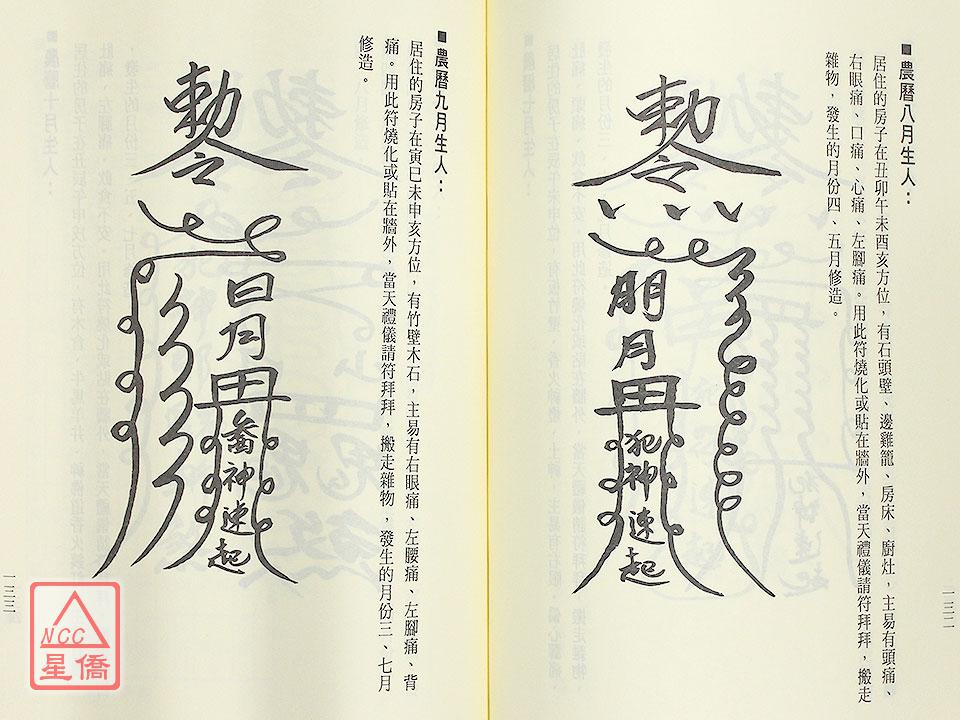 ■農曆八月生人：
居住的房子在丑卯午未酉亥方位，有石頭壁、邊雞籠、房床、廚灶，主易有頭痛、
右眼痛、口痛、心痛、左腳痛。用此符燒化或貼在牆外，當天禮儀請符拜拜，搬走
雜物，發生的月份四、五月修造。
勅令
朋月
犯神速起
一三二
■農曆九月生人：
居住的房子在寅巳未申亥方位，有竹壁木石，主易有右眼痛、左腰痛、左腳痛、背
痛。用此符燒化或貼在牆外，當天禮儀請符拜拜，搬走雜物，發生的月份三、七月
修造。
勅令
日月
神速起
一三三
NCC
星僑